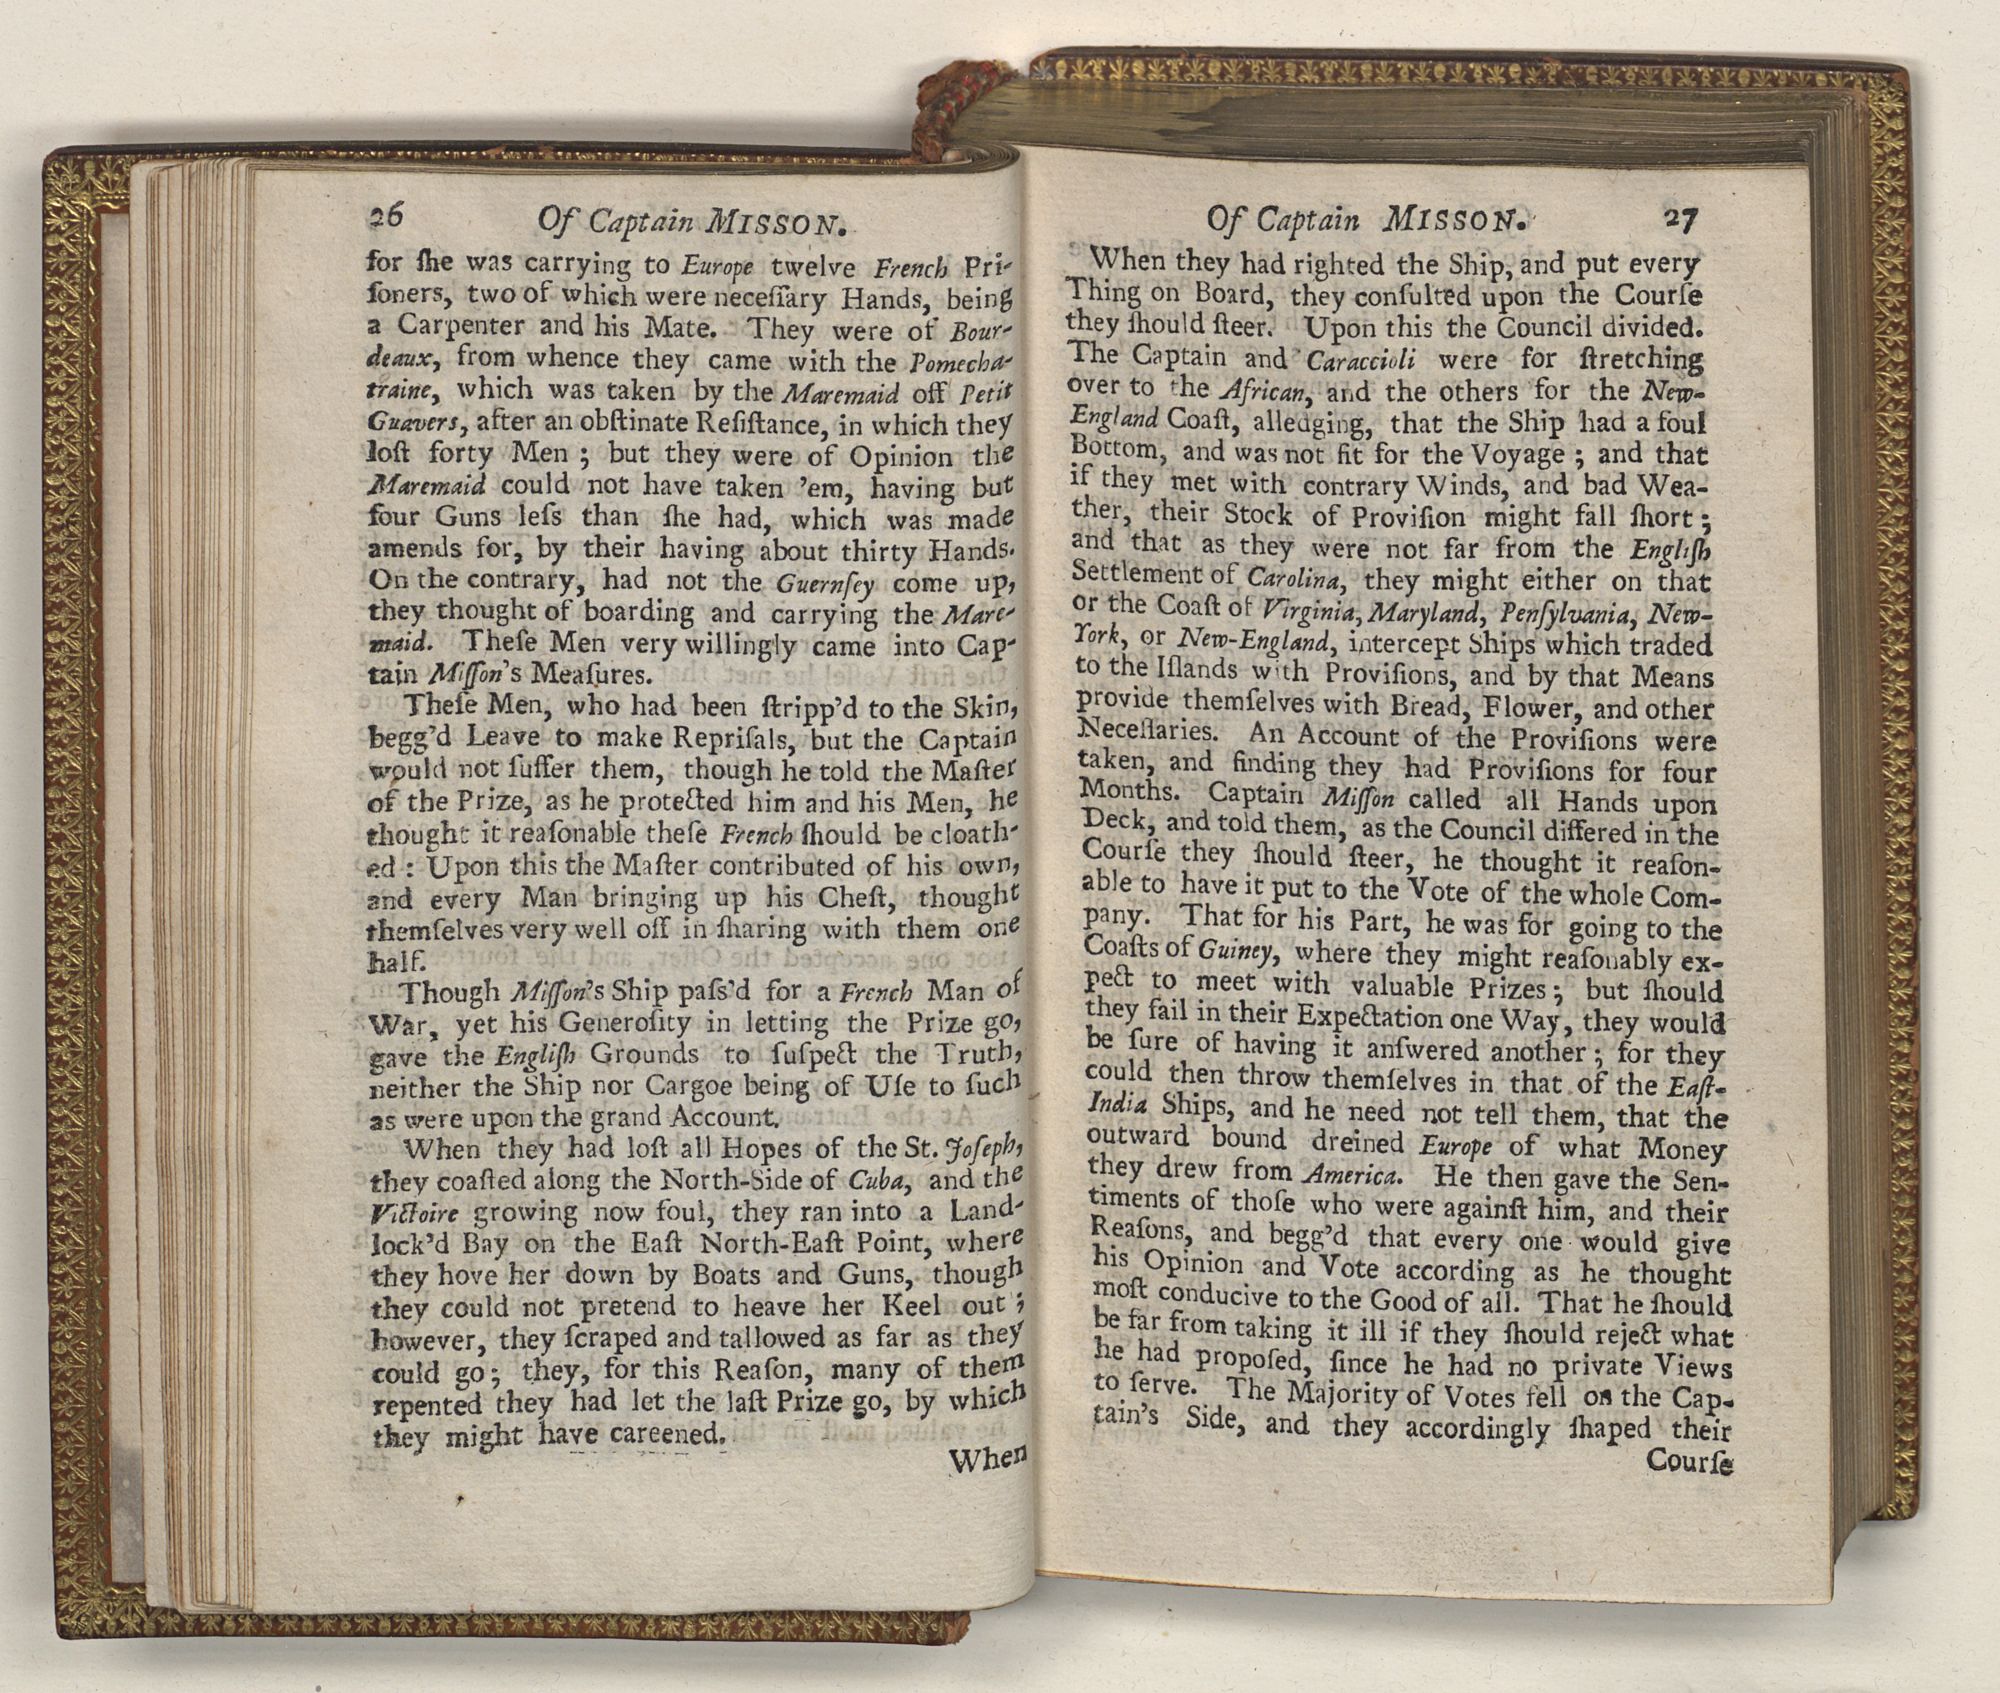 26 Of Captain MISSON.
for ſhe was carrying to Europe twelve French Pri-
ſoners, two of which were neceſſary Hands, being
a Carpenter and his Mate. They were of Bour-
deaux, from whence they came with the Pomecha-
traine, which was taken by the Maremaid off Petit
Guavers, after an obſtinate Reſiſtance, in which they
loſt forty Men ; but they were of Opinion the
Maremaid could not have taken 'em, having but
four Guns leſs than ſhe had, which was made
amends for, by their having about thirty Hands.
On the contrary, had not the Guernſey come up,
they thought of boarding and carrying the Mare-
maid. Theſe Men very willingly came into Cap-
tain Miſſon's Meaſures.
Theſe Men, who had been ſtripp'd to the Skin,
begg'd Leave to make Repriſals, but the Captain
would not ſuffer them, though he told the Maſter
of the Prize, as he protected him and his Men, he
thought it reaſonable theſe French ſhould be cloath-
ed : Upon this the Maſter contributed of his own,
and every Man bringing up his Cheſt, thought
themſelves very well off in ſharing with them one
half.
Though Miſſon's Ship paſs'd for a French Man of
War, yet his Generoſity in letting the Prize go,
gave the Engliſh Grounds to ſuſpect the Truth,
neither the Ship nor Cargoe being of Uſe to ſuch
as were upon the grand Account.
When they had loſt all Hopes of the St. Joſeph,
they coaſted along the North-Side of Cuba, and the
Victoire growing now foul, they ran into a Land-
lock'd Bay on the Eaſt North-Eaſt Point, where
they hove her down by Boats and Guns, though
they could not pretend to heave her Keel out ;
however, they ſcraped and tallowed as far as they
could go; they, for this Reaſon, many of them
repented they had let the laſt Prize go, by which
they might have careened.
When
Of Captain MISSON. 27
When they had righted the Ship, and put every
Thing on Board, they conſulted upon the Courſe
they ſhould ſteer. Upon this the Council divided.
The Captain and Caraccioli were for ſtretching
over to the African, and the others for the New-
England Coaſt, alledging, that the Ship had a foul
Bottom, and was not fit for the Voyage ; and that
if they met with contrary Winds, and bad Wea-
ther, their Stock of Proviſion might fall ſhort ;
and that as they were not far from the Engliſh
Settlement of Carolina, they might either on that
or the Coaſt of Virginia, Maryland, Penſylvania, New-
York, or New-England, intercept Ships which traded
to the Iſlands with Proviſions, and by that Means
provide themſelves with Bread, Flower, and other
Neceſſaries. An Account of the Proviſions were
taken, and finding they had Proviſions for four
Months. Captain Miſſon called all Hands upon
Deck, and told them, as the Council differed in the
Courſe they ſhould ſteer, he thought it reaſon-
able to have it put to the Vote of the whole Com-
pany. That for his Part, he was for going to the
Coaſts of Guiney, where they might reaſonably ex-
pect to meet with valuable Prizes ; but ſhould
they fail in their Expectation one Way, they would
be ſure of having it anſwered another ; for they
could then throw themſelves in that of the Eaſt-
India Ships, and he need not tell them, that the
outward bound dreined Europe of what Money
they drew from America. He then gave the Sen-
timents of thoſe who were againſt him, and their
Reaſons, and begg'd that every one would give
his Opinion and Vote according as he thought
moſt conducive to the Good of all. That he ſhould
be far from taking it ill if they ſhould reject what
he had propoſed, ſince he had no private Views
to ſerve. The Majority of Votes fell on the Cap-
tain's Side, and they accordingly ſhaped their
Courſe